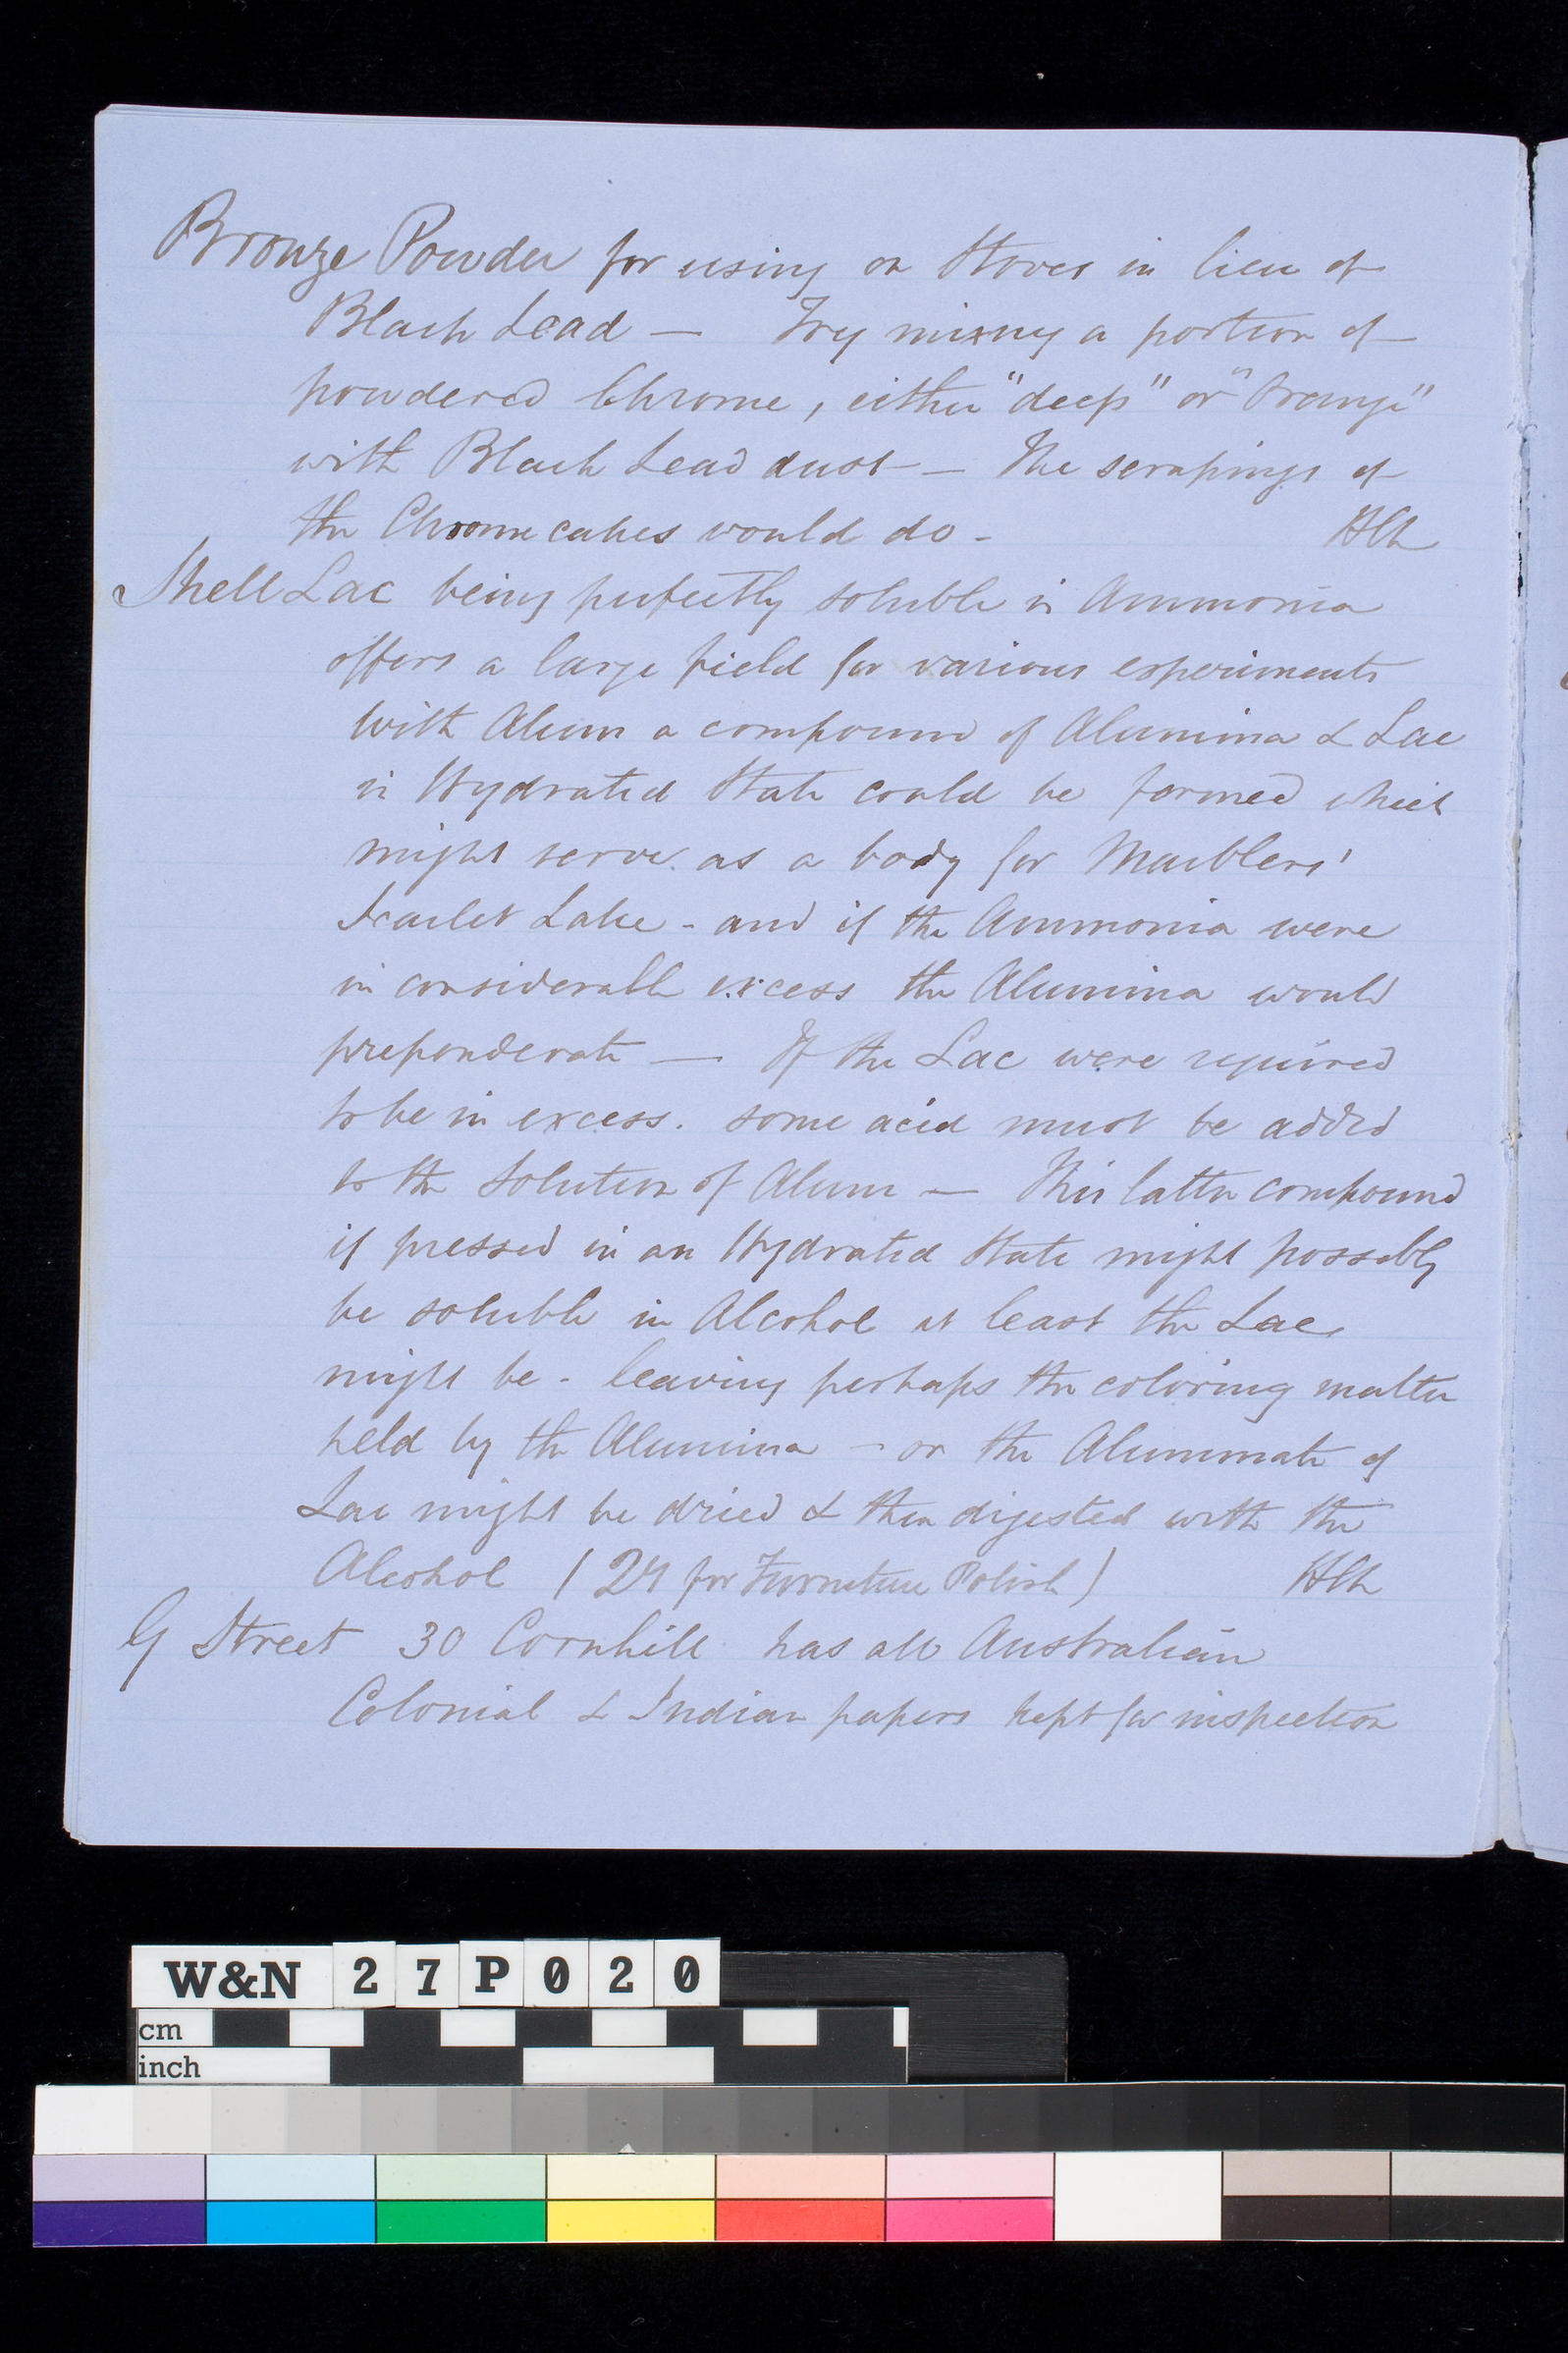 Bronze Powder for using on Stoves in lieu of
Black Lead — Try mixing a portion of
powdered Chrome, either "deep" or "Orange"
with Black Lead dust — The scrapings of
the Chrome cakes would do -
Shell Lac being perfectly soluble in Ammonia
offers a large field for various experiments
With Alum a compound of Alumina & Lac
in Hydrated State could be formed which
might serve as a body for Marblers'
Scarlet Lake - and if the Ammonia were
in considerable excess the Alumina would
preponderate — If the Lac were required
to be in excess. some acid must be added
to the Solution of Alum — This latter compound
if pressed in an Hydrated State might possibly
be soluble in Alcohol at least the Lac
might be - leaving perhaps the coloring matter
held by the Alumina - or the Aluminate of
Lac might be dried & then digested with the
Alcohol ( 24 for Furniture Polish )
G Street 30 Cornhill has all Australian
Colonial & Indian papers kept for inspection
W&N 27P020
cm
inch